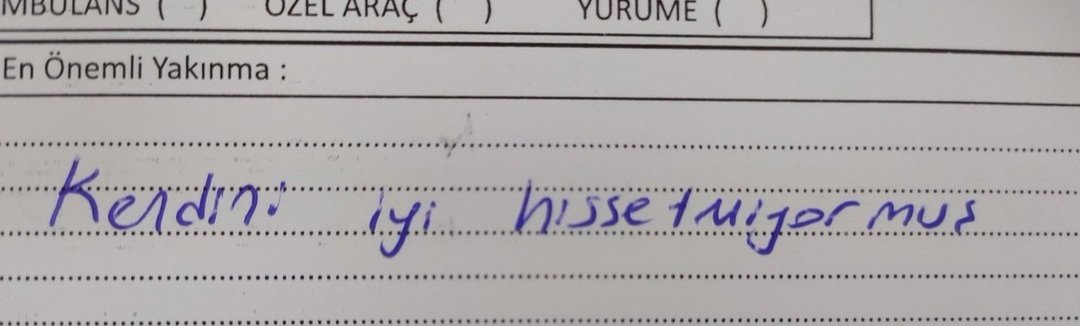 MBULANS ( ) ÖZEL ARAÇ ( ) YÜRÜME ( )
En Önemli Yakınma :
Kendini iyi hissetmiyormuş